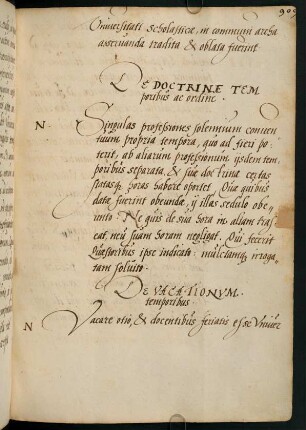 909
Universitati scholasticæ, in communi archa
asservanda tradita & oblata fuerint
DE DOCTRINÆ TEM
poribus ac ordine.
N. Singulas professiones solemnium conven
tuum propria tempora, quo ad fieri po
terit, ab aliarum professionum ijsdem tem
poribus separata, & suæ doctrinæ certas
statasq; horas habere oportet. Quæ quibus
datæ fuerint obeundæ, ij illas sedulo obe
unto. Ne quis de sua hora in aliam trans
eat, neu suam horam negligat. Qui fecerit
Quæstoribus ipse indicato: mulctamq; irroga
tam soluito.
DE VACATIONUM
temporibus.
N Vacare otio, & docentibus feriatis esse Univer